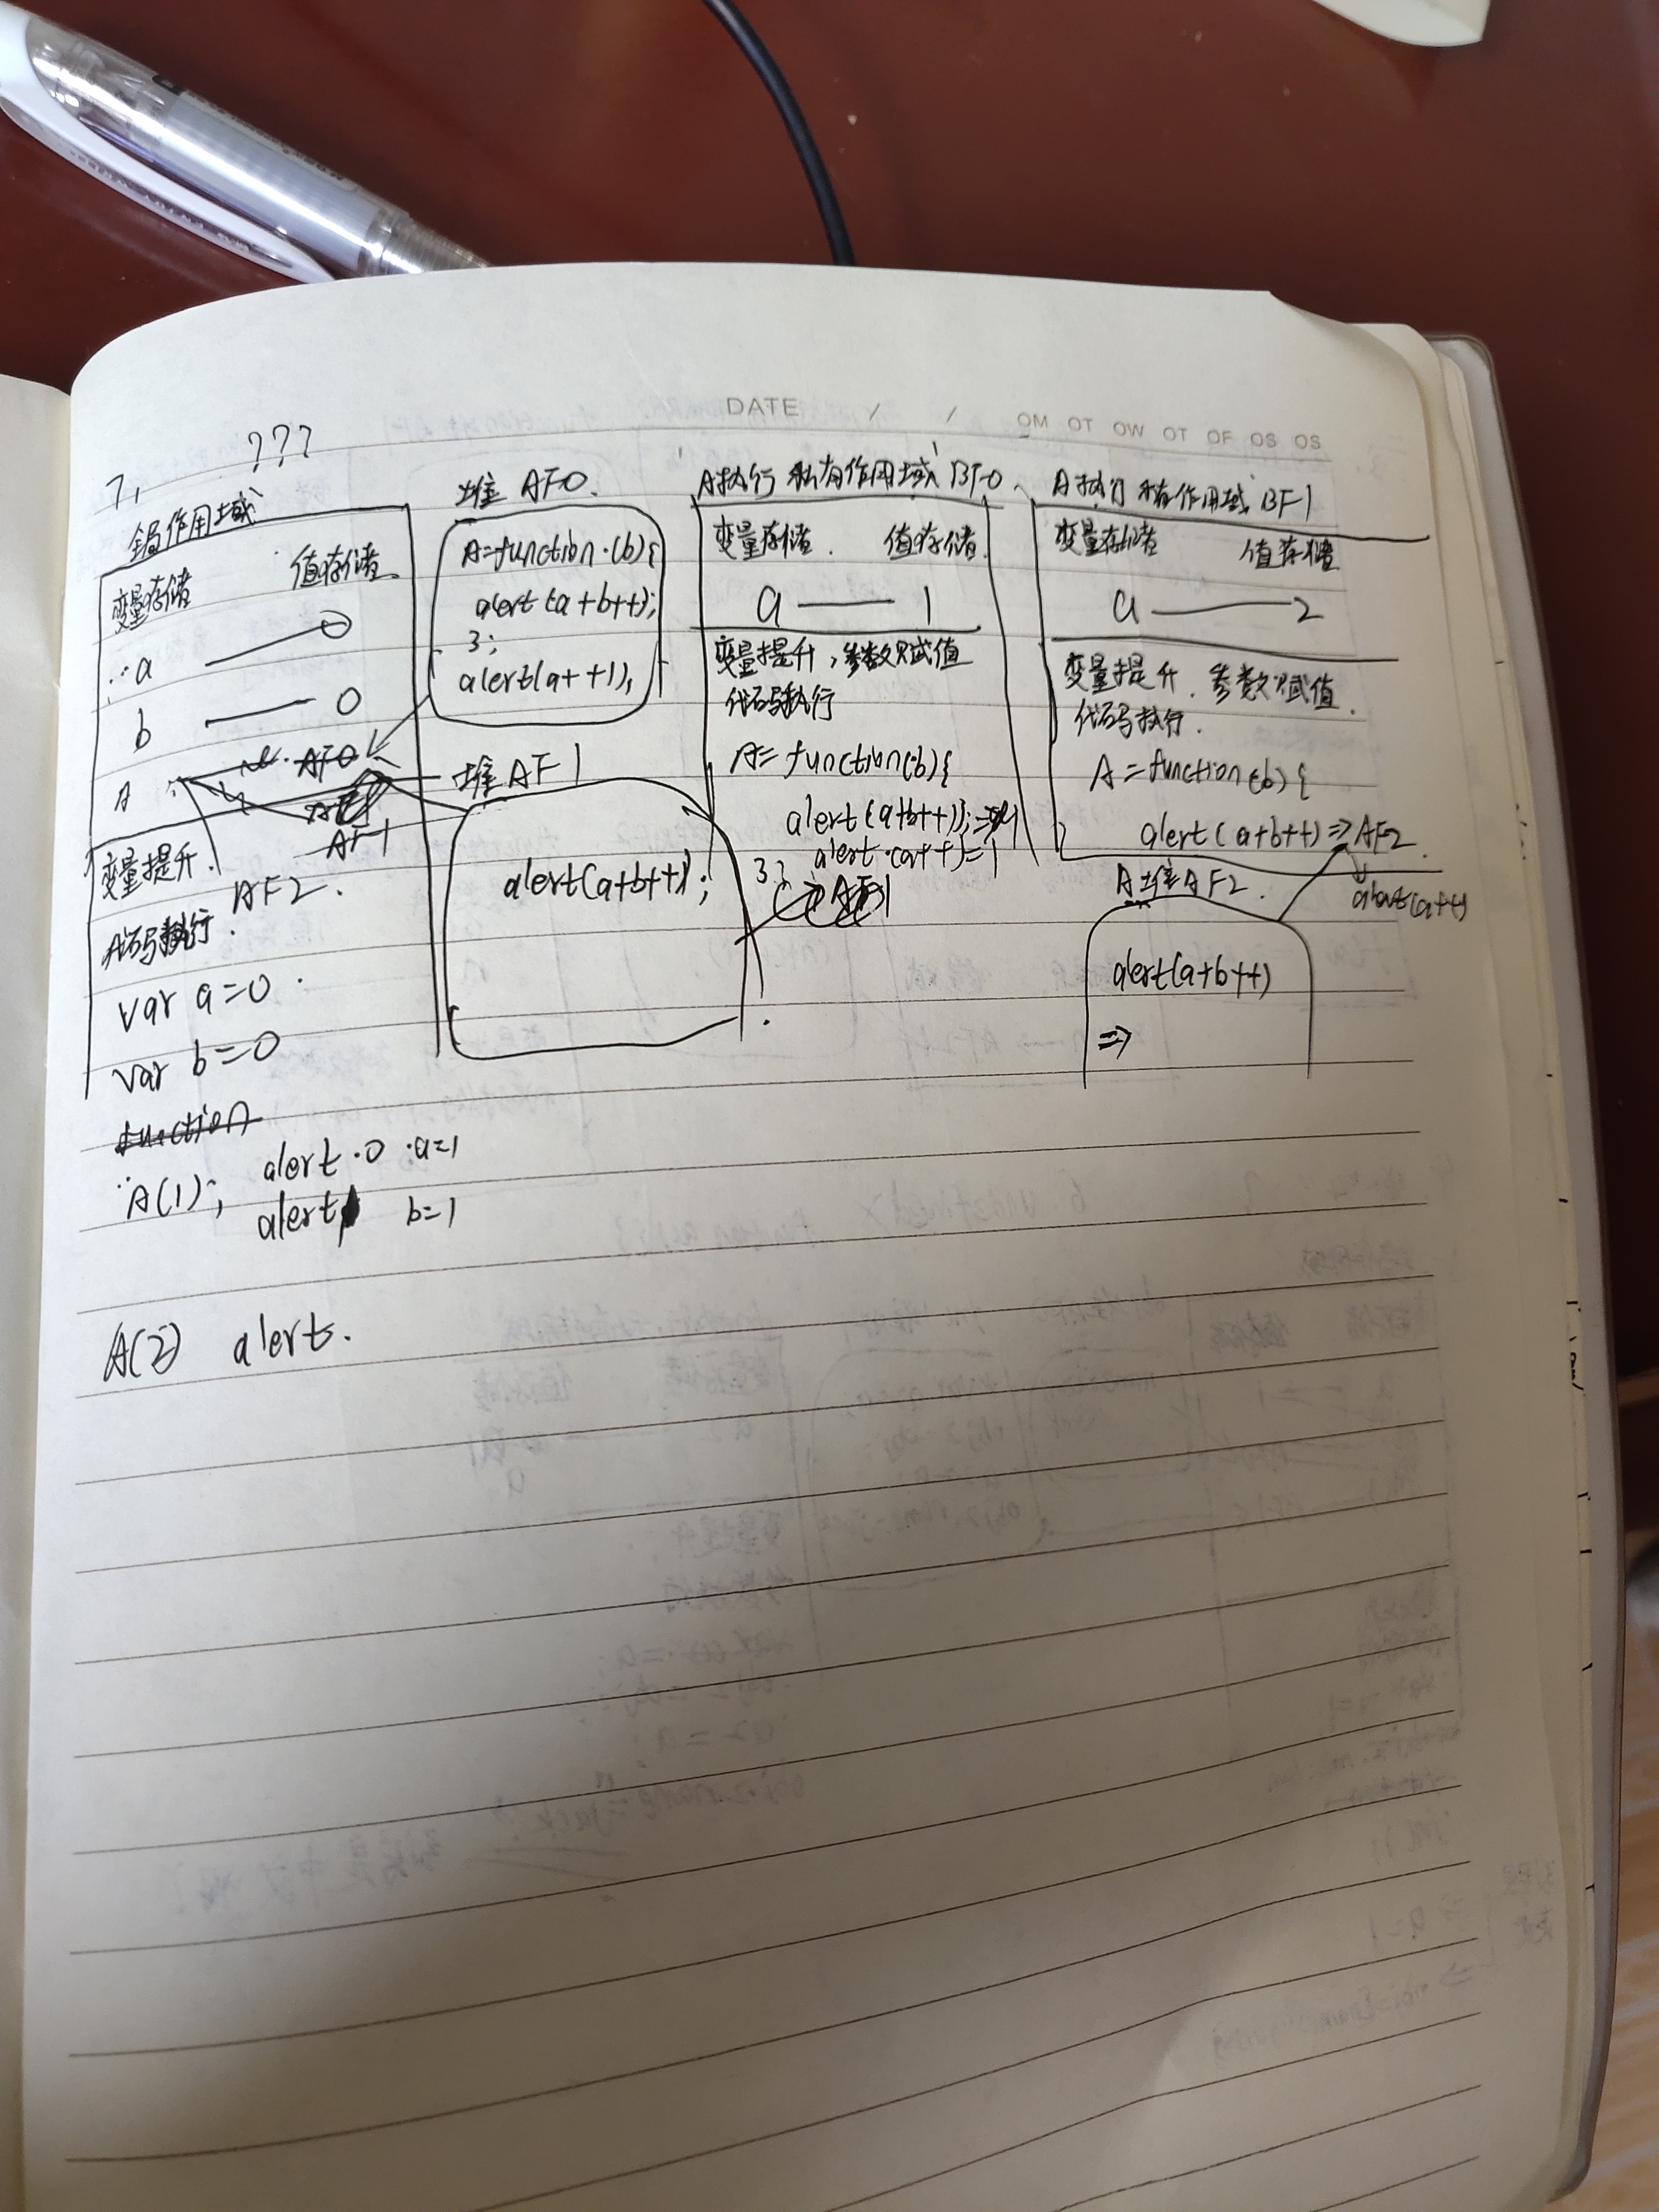 DATE / /
OM OT OW OT OF OS OS
7, ???
全局作用域
变量存储 值存储
a 0
b 0
A AF0
AF1
AF2
变量提升
代码执行
var a=0
var b=0
function
A(1); alert 0 a=1
alert b=1
A(2) alert.
堆 AF0
A=function(b){
alert(a+b++);
};
alert(a++);
堆 AF1
alert(a+b++);
A执行 私有作用域 BF0
变量存储 值存储
a 1
变量提升,参数赋值
代码执行
A=function(b){
alert(a+b++);
}; alert(a++)=1
AF1
A执行 私有作用域 BF1
变量存储 值存储
a 2
变量提升. 参数赋值
代码执行.
A=function(b){
alert(a+b++)⇒AF2
alert(a++)
A堆AF2.
alert(a+b++)
⇒